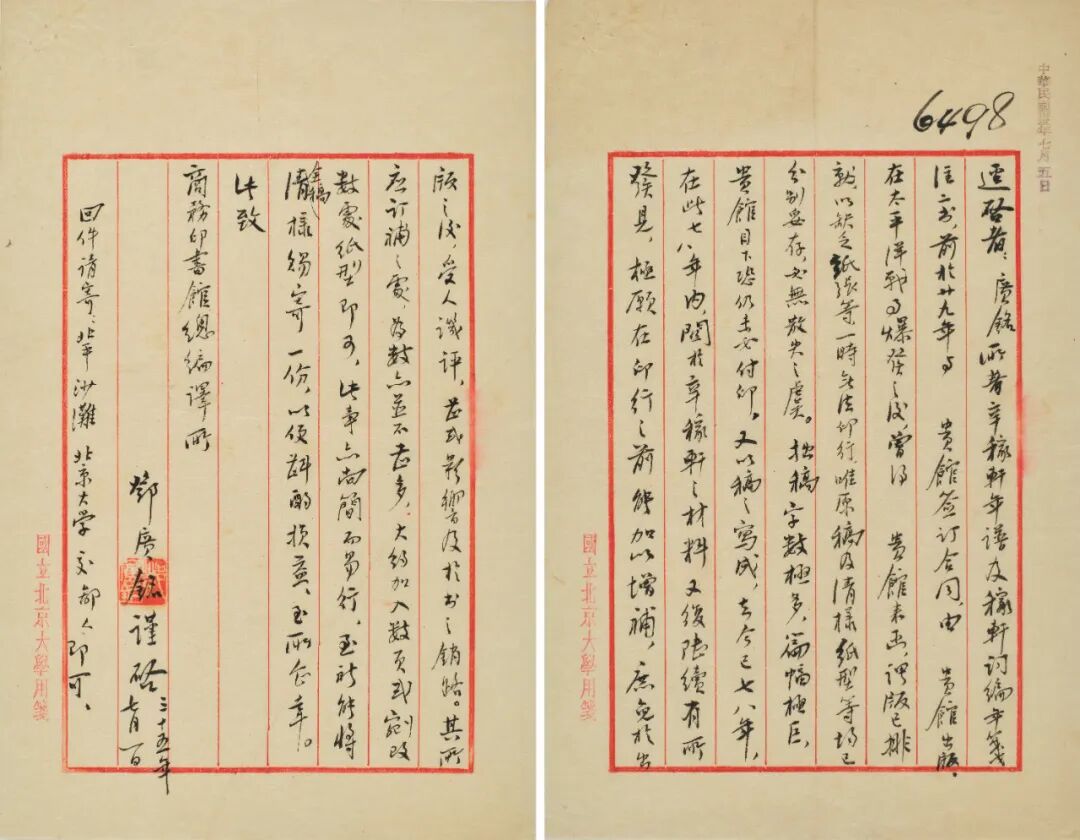 中華民國卅五年七月五日
6498
逕啓者：廣銘所著辛稼軒年譜及稼軒詞編年箋
注二書，前於廿九年與 貴館簽訂合同，由 貴館出版。
在太平洋戰事爆發之後，曾得 貴館來函，謂版已排
就，以缺乏紙張等一時無法印行，唯原稿及清樣紙型等均已
分別妥存，必無散失之虞。拙稿字數極多，篇幅極巨，
貴館目下恐仍未必付印。又以稿之寫成，去今已七八年，
在此七八年內，關於辛稼軒之材料又復陸續有所
發見，極願在印行之前能加以增補，庶免於出
版之後，受人譏評，甚或影響及於書之銷路。其所
應訂補之處，為數亦並不甚多，大約加入數頁或剜改
數處紙型即可，此事亦尚簡而易行，至祈能將
全稿
清樣賜寄一份，以便斟酌損益，至所企幸。
此致
商務印書館總編譯所
鄧廣銘謹啓 三十五年
七月一日
回件請寄：北平沙灘北京大學交鄙人即可。
國立北京大學用箋
國立北京大學用箋